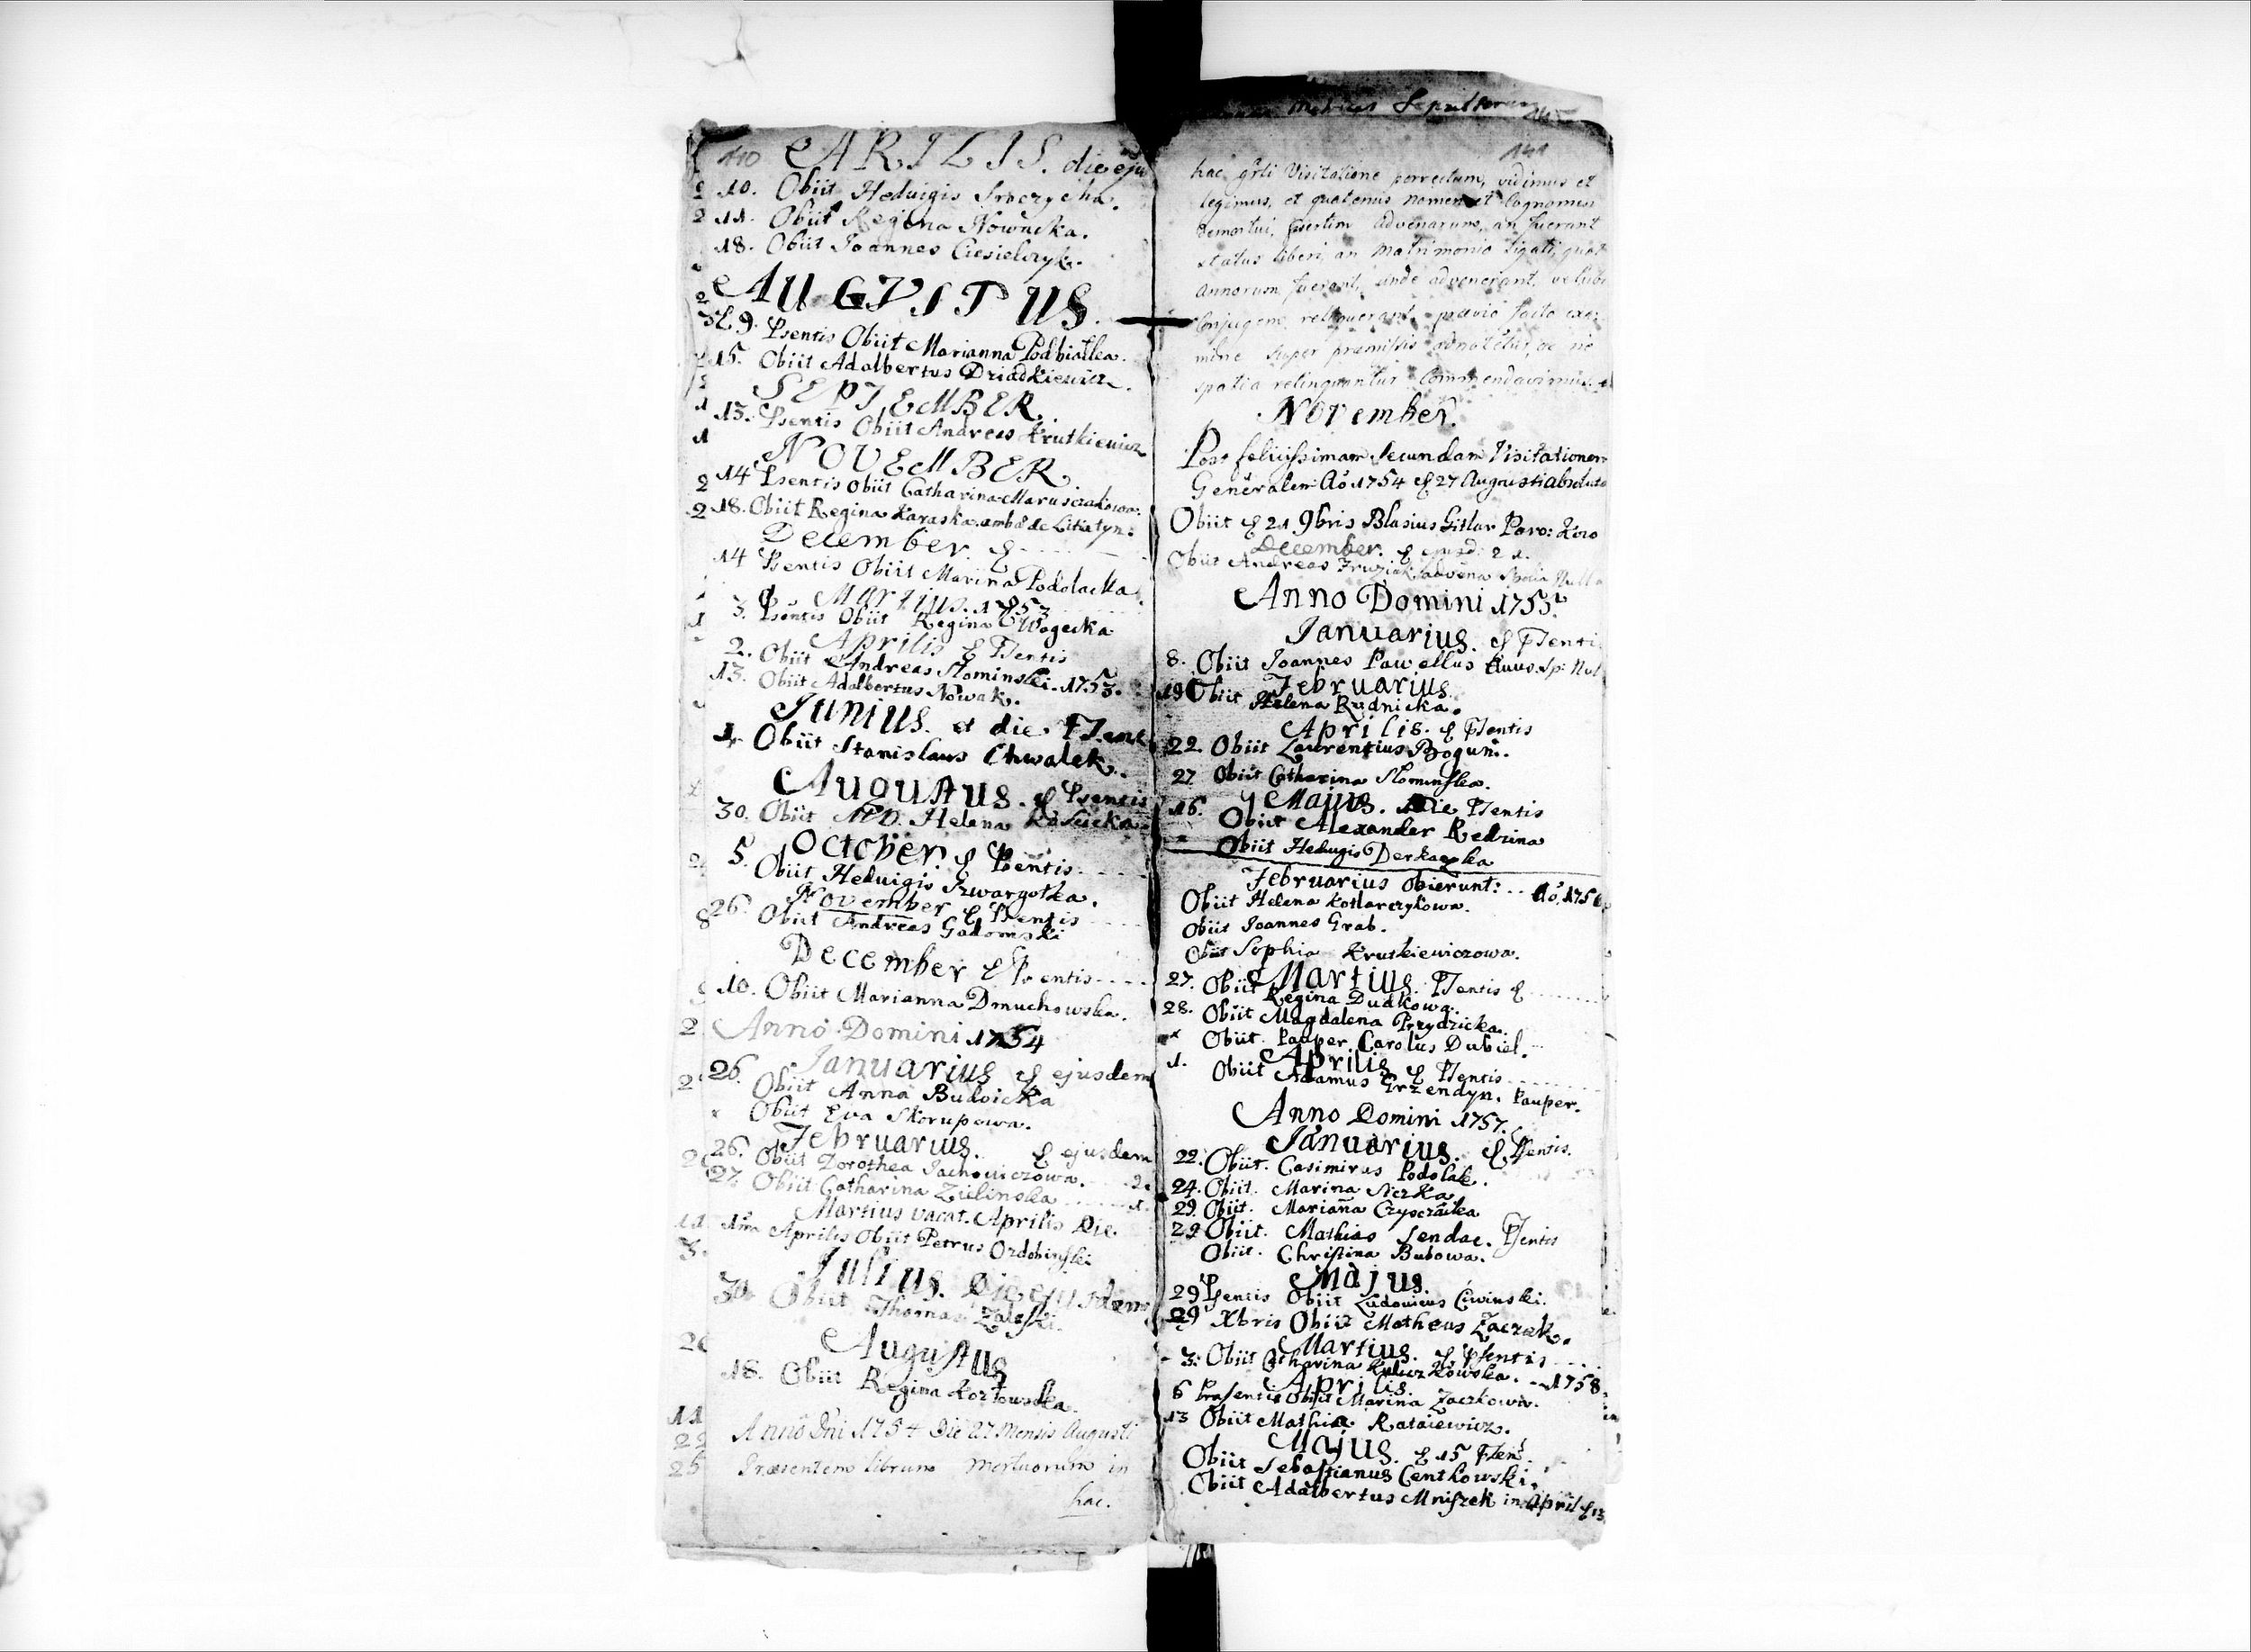 110 APRILIS. die eju
10. Obiit Heduigis
11. Obiit Regina Nowacka.
18. Obiit Joannes Ciesielczyk.
AUGUSTUS.
9. Psentis Obiit Marianna Podbialka.
15. Obiit Adalbertus Dziadkiewicz.
SEPTEMBER.
13. Psentis Obiit Andreas Krutkiewicz
NOVEMBER
14 Psentis Obiit Catharina Marusczakowa.
18. Obiit Regina Karaska ambæ de Litiatyn.
December.
14 Psentis Obiit Marina Podolacka.
Martius. 1753
3. Psentis Obiit Regina
Aprilis Psentis
2. Obiit Andreas Slominski. 1753.
13. Obiit Adalbertus Nowak.
Junius. et die
Obiit Stanislaus Chwalek.
Augustus. Psentis
30. Obiit Helena
October. Psentis
5. Obiit Heduigis Szwargotka.
November Psentis
26. Obiit Andreas Gadomski
December Psentis
10. Obiit Marianna Dmuchowska.
Anno Domini 1754
Januarius ejusdem
26. Obiit Anna Budoicka
Obiit Eva Skorupowa.
Februarius. ejusdem
26. Obiit Dorothea Jachowiczowa.
27. Obiit Catharina Zielinska
Martius vacat. Aprilis Die.
1ma Aprilis Obiit Petrus Ozdobinski
Julius. Die ejusdem
30 Obiit Thomas Zaleski.
Augustus
18. Obiit Regina Kozlowska.
Anno Dni 1754 Die 27 Mensis Augusti
Præsentem librum Mortuorum in
hac.
141
hac grli Visitatione porrectum, vidimus et
legimus, et quatenus nomen et Cognomen
demortui, advenarum, an fuerint
status liberi, an Matrimonio ligati, quot
annorum fuerint, unde advenerant, vel ubi
Conjugem reliquerant, prævio facto exa
mine super præmissis adnotetur, ac ne
spatia relinquantur Commendavimus.
November.
Post felicissimam Secundam Visitationem
Generalem Ao 1754 27 Augusti absoluta
Obiit 21 9bris Blasius Gitlar
December. ejusd: 21.
Obiit Andreas advena
Anno Domini 1755.
Januarius. Psenti
8. Obiit Joannes Pawellus
Februarius
19 Obiit Helena Rudnicka.
Aprilis. Psentis
22. Obiit Laurentius Bogun.
27 Obiit Catharina Slominska.
Majus. Die Psentis
16. Obiit Alexander Redzina
Obiit Heduigis Derkaczka
Februarius Obierunt: Ao. 1756
Obiit Helena Kotlarczykowa.
Obiit Joannes Grab.
Obiit Sophia Krutkiewiczowa.
Martius. Psentis
27. Obiit Regina Dudkowa.
28. Obiit Magdalena Przydzicka.
Obiit Pauper Carolus Dubiel.
Aprilis Psentis
1. Obiit Adamus Grzendyn. Pauper.
Anno Domini 1757.
Januarius. Psentis.
22. Obiit. Casimirus Podolak.
24. Obiit. Marina Siczka
29. Obiit. Marianna
29 Obiit. Mathias Sendac. Psentis
Obiit. Christina Bubowa.
Majus.
29 Psentis Obiit Ludovicus Ciwinski.
29 Xbris Obiit Matheus Zaczek.
Martius. Psentis
3. Obiit Catharina 1758
Aprilis.
6 Præsentis Obiit Marina Zaczkowa.
13 Obiit Mathias Rataiewicz.
Majus. 15 Psen.
Obiit Sebastianus Centkowski.
Obiit Adalbertus Mniszek in April 13